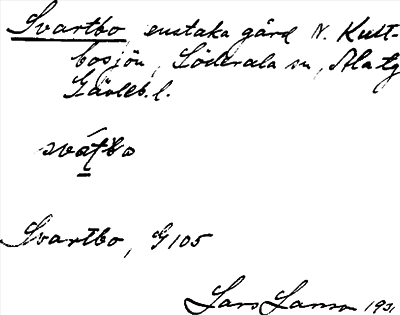 Svartbo, enstaka gård N. Kust-
bosjön, Söderala sn, Ala tg
Gävleb. l.
svátbo
Svartbo, G 105
Lars Larson 1931